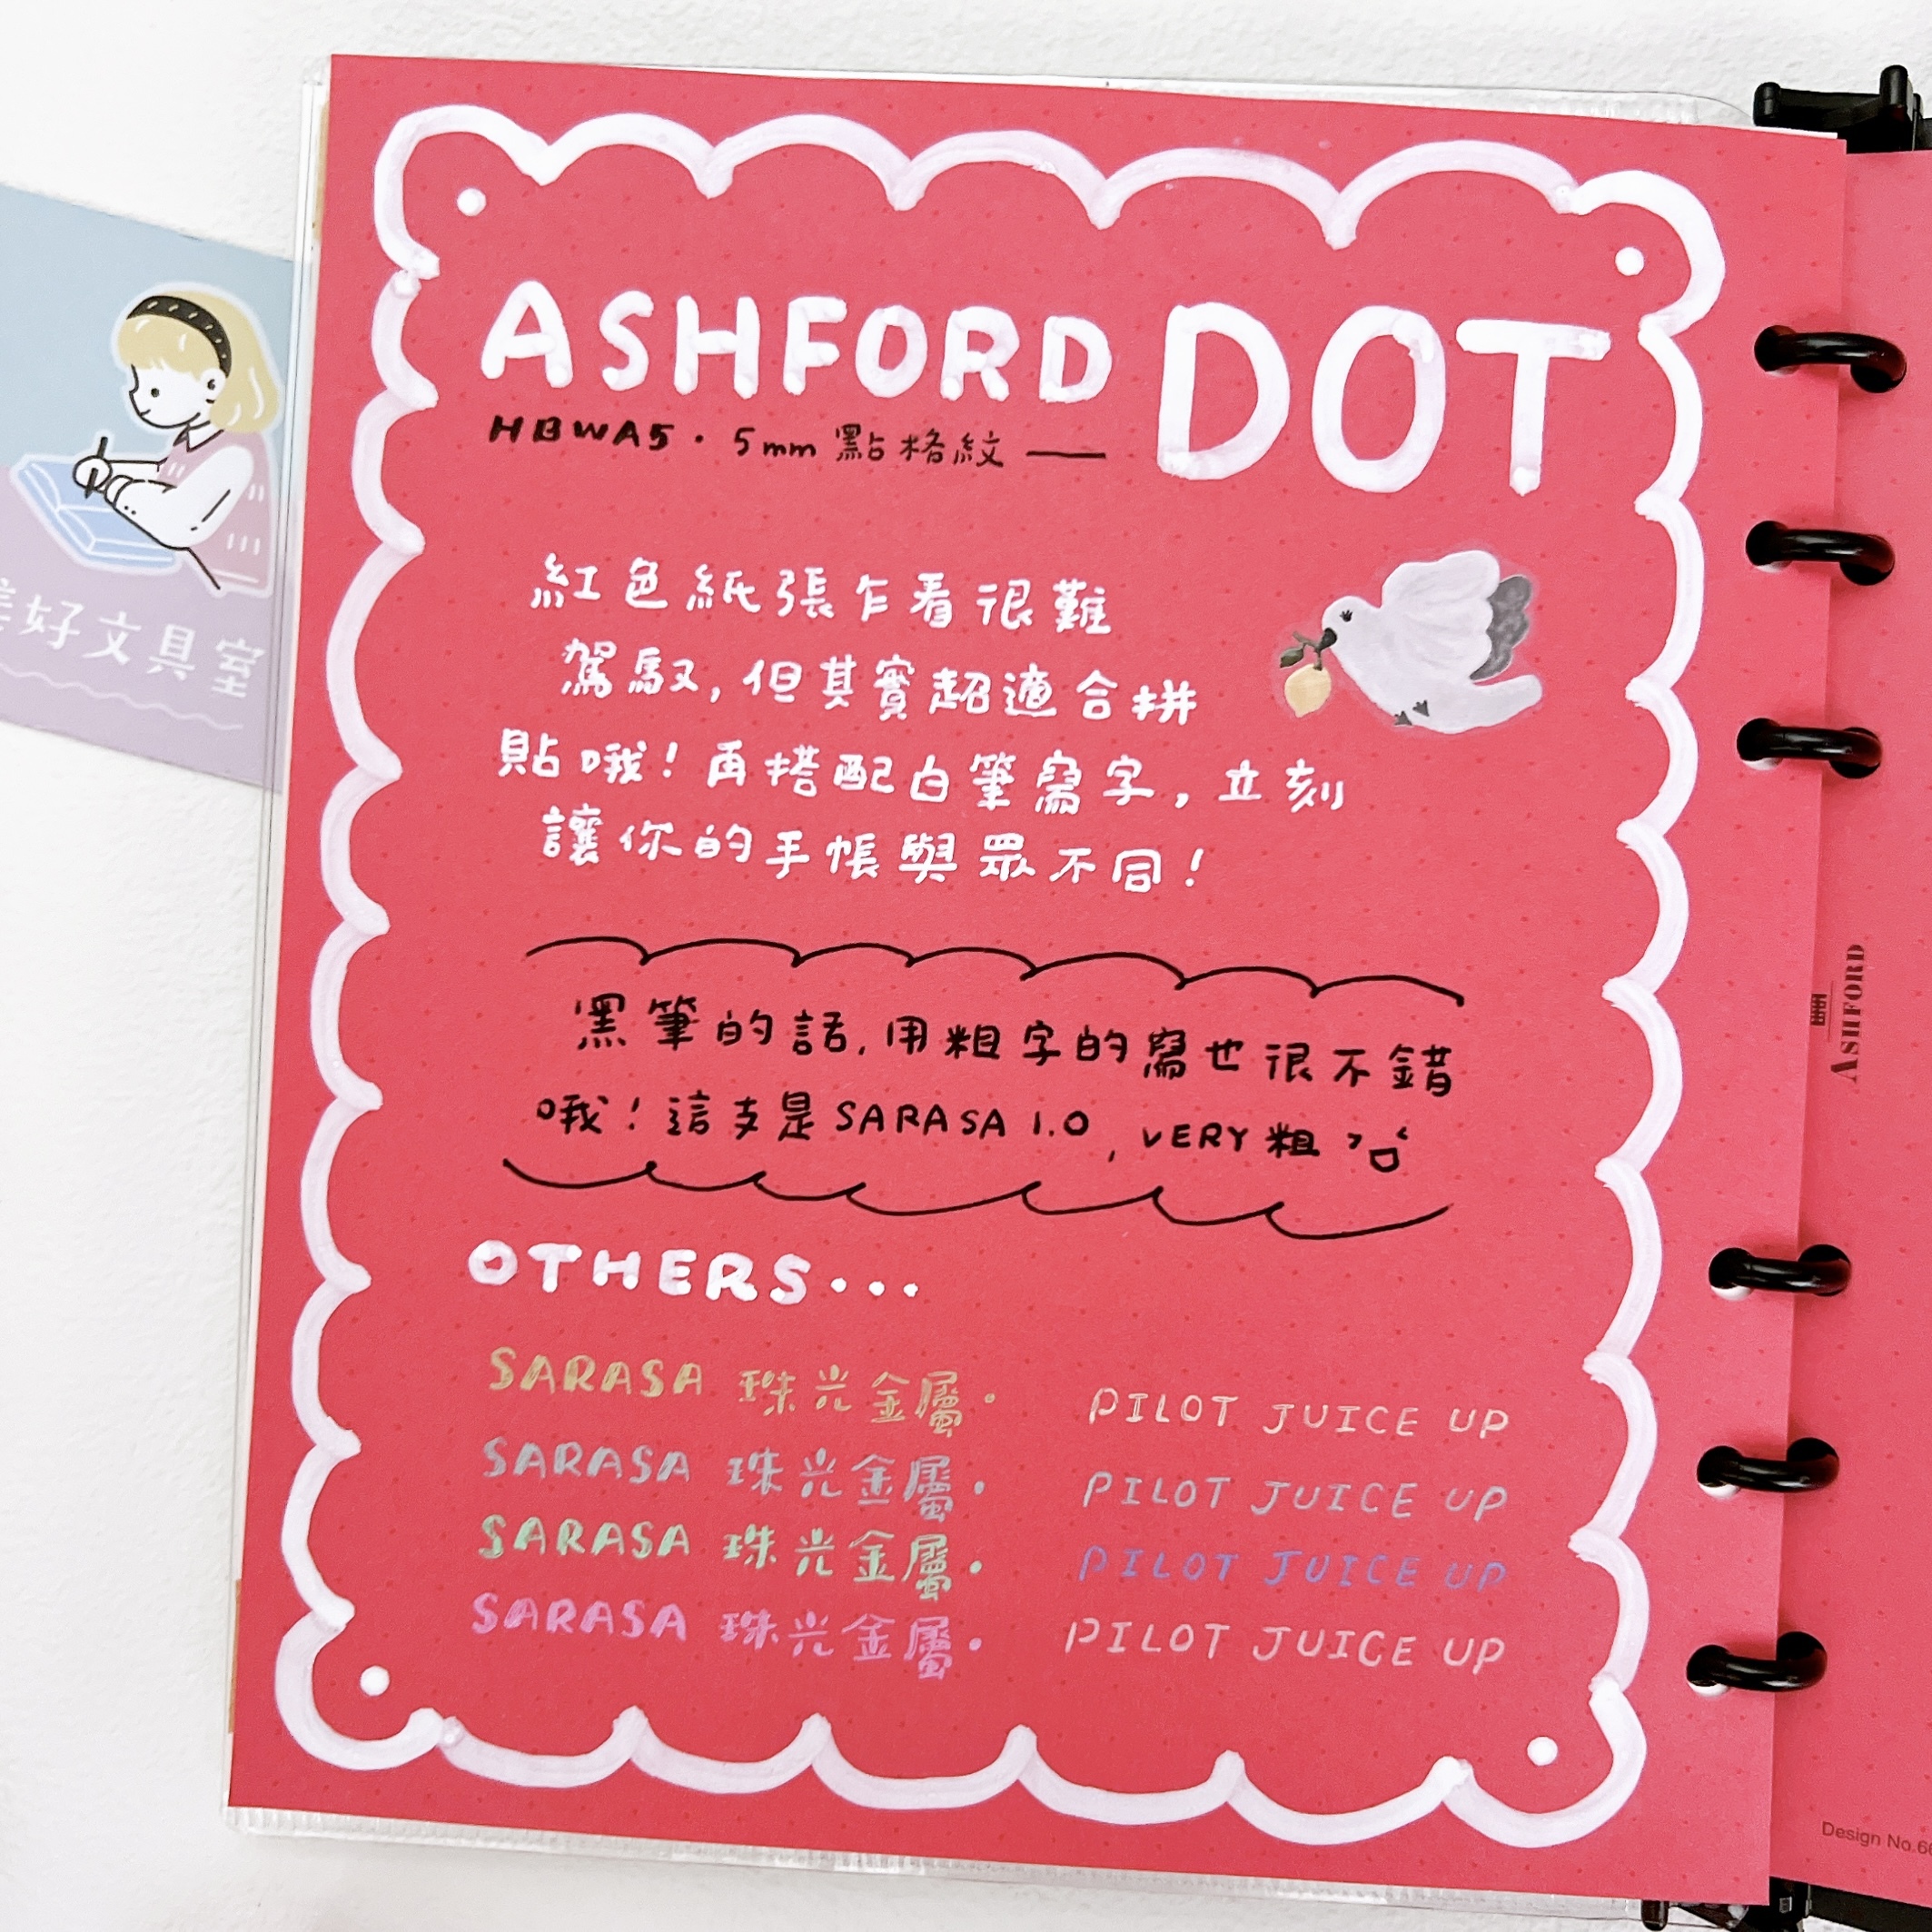 ASHFORD DOT
HBWA5 · 5mm 點格紋 —
紅色紙張乍看很難
駕馭,但其實超適合拼
貼哦!再搭配白筆寫字,立刻
讓你的手帳與眾不同!
黑筆的話,用粗字的寫也很不錯
哦!這支是SARASA 1.0, VERY粗
OTHERS...
SARASA 珠光金屬· PILOT JUICE UP
SARASA 珠光金屬· PILOT JUICE UP
SARASA 珠光金屬· PILOT JUICE UP
SARASA 珠光金屬· PILOT JUICE UP
好文具室
ASHFORD
Design No.